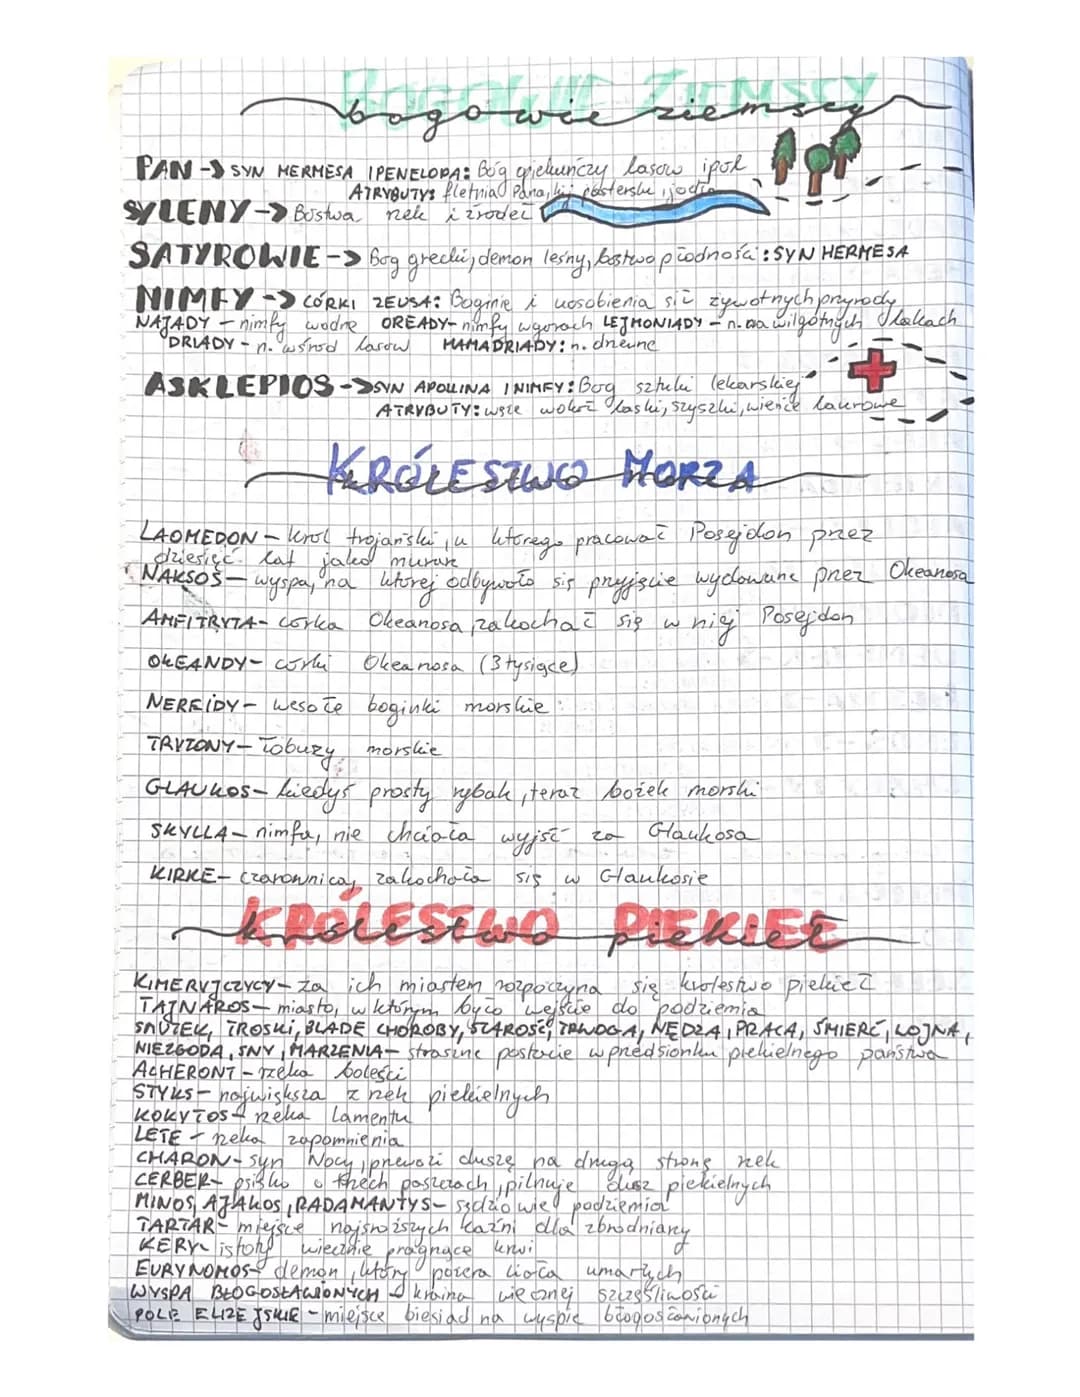 BOGOWIE ZIEMSCY
bogowie ziemscy
PAN -> SYN HERMESA I PENELOPA: Bóg opiekuńczy lasów i pól
ATRYBUTY: fletnia Pana, kij pasterski, jodła
SYLENY -> Bóstwa rzek i źródeł
SATYROWIE -> Bóg grecki, demon leśny, bóstwo płodności: SYN HERMESA
NIMFY -> CÓRKI ZEUSA: Boginie i uosobienia sił żywotnych przyrody
NAJADY - nimfy wodne OREADY- nimfy w gorach LEJMONIADY - n. na wilgotnych łąkach
DRIADY - n. wśród lasów HAMADRIADY: n. drzewne
ASKLEPIOS -> SYN APOLLINA I NIMFY: Bóg sztuki lekarskiej
ATRYBUTY: węże wokół laski, szyszki, wieńce laurowe
KRÓLESTWO MORZA
LAOMEDON - król trojański, u którego pracował Posejdon przez
dziesięć lat jako murarz
NAKSOS - wyspa, na której odbywało się przyjęcie wydawane przez Okeanosa
AMFITRYTA- córka Okeanosa, zakochał się w niej Posejdon
OKEANDY- córki Okeanosa (3 tysiące)
NEREIDY - wesołe boginki morskie
TRYTONY - łobuzy morskie
GLAUKOS- kiedyś prosty rybak, teraz bożek morski
SKYLLA - nimfa, nie chciała wyjść za Glaukosa
KIRKE - czarownica, zakochała się w Glaukosie
KRÓLESTWO PIEKIEŁ
królestwo piekieł
KIMERYJCZYCY - za ich miastem rozpoczyna się królestwo piekieł
TAJNAROS - miasto, w którym było wejście do podziemia
SMUTEK, TROSKI, BLADE CHOROBY, STAROŚĆ, TRWOGA, NĘDZA, PRACA, ŚMIERĆ, WOJNA,
NIEZGODA, SNY, MARZENIA - straszne postacie w przedsionku piekielnego państwa
ACHERONT - rzeka boleści
STYKS - największa z rzek piekielnych
KOKYTOS - rzeka lamentu
LETE - rzeka zapomnienia
CHARON- syn Nocy, przewozi duszę na drugą stronę rzek
CERBER- psisko o trzech paszczach, pilnuje dusz piekielnych
MINOS, AJAKOS, RADAMANTYS - sędziowie podziemia
TARTAR - miejsce najsroższych kaźni dla zbrodniarzy
KERY - istoty wiecznie pragnące krwi
EURYNOMOS- demon, który pożera ciała umarłych
WYSPA BŁOGOSŁAWIONYCH - kraina wiecznej szczęśliwości
POLE ELIZEJSKIE - miejsce biesiad na wyspie błogosławionych